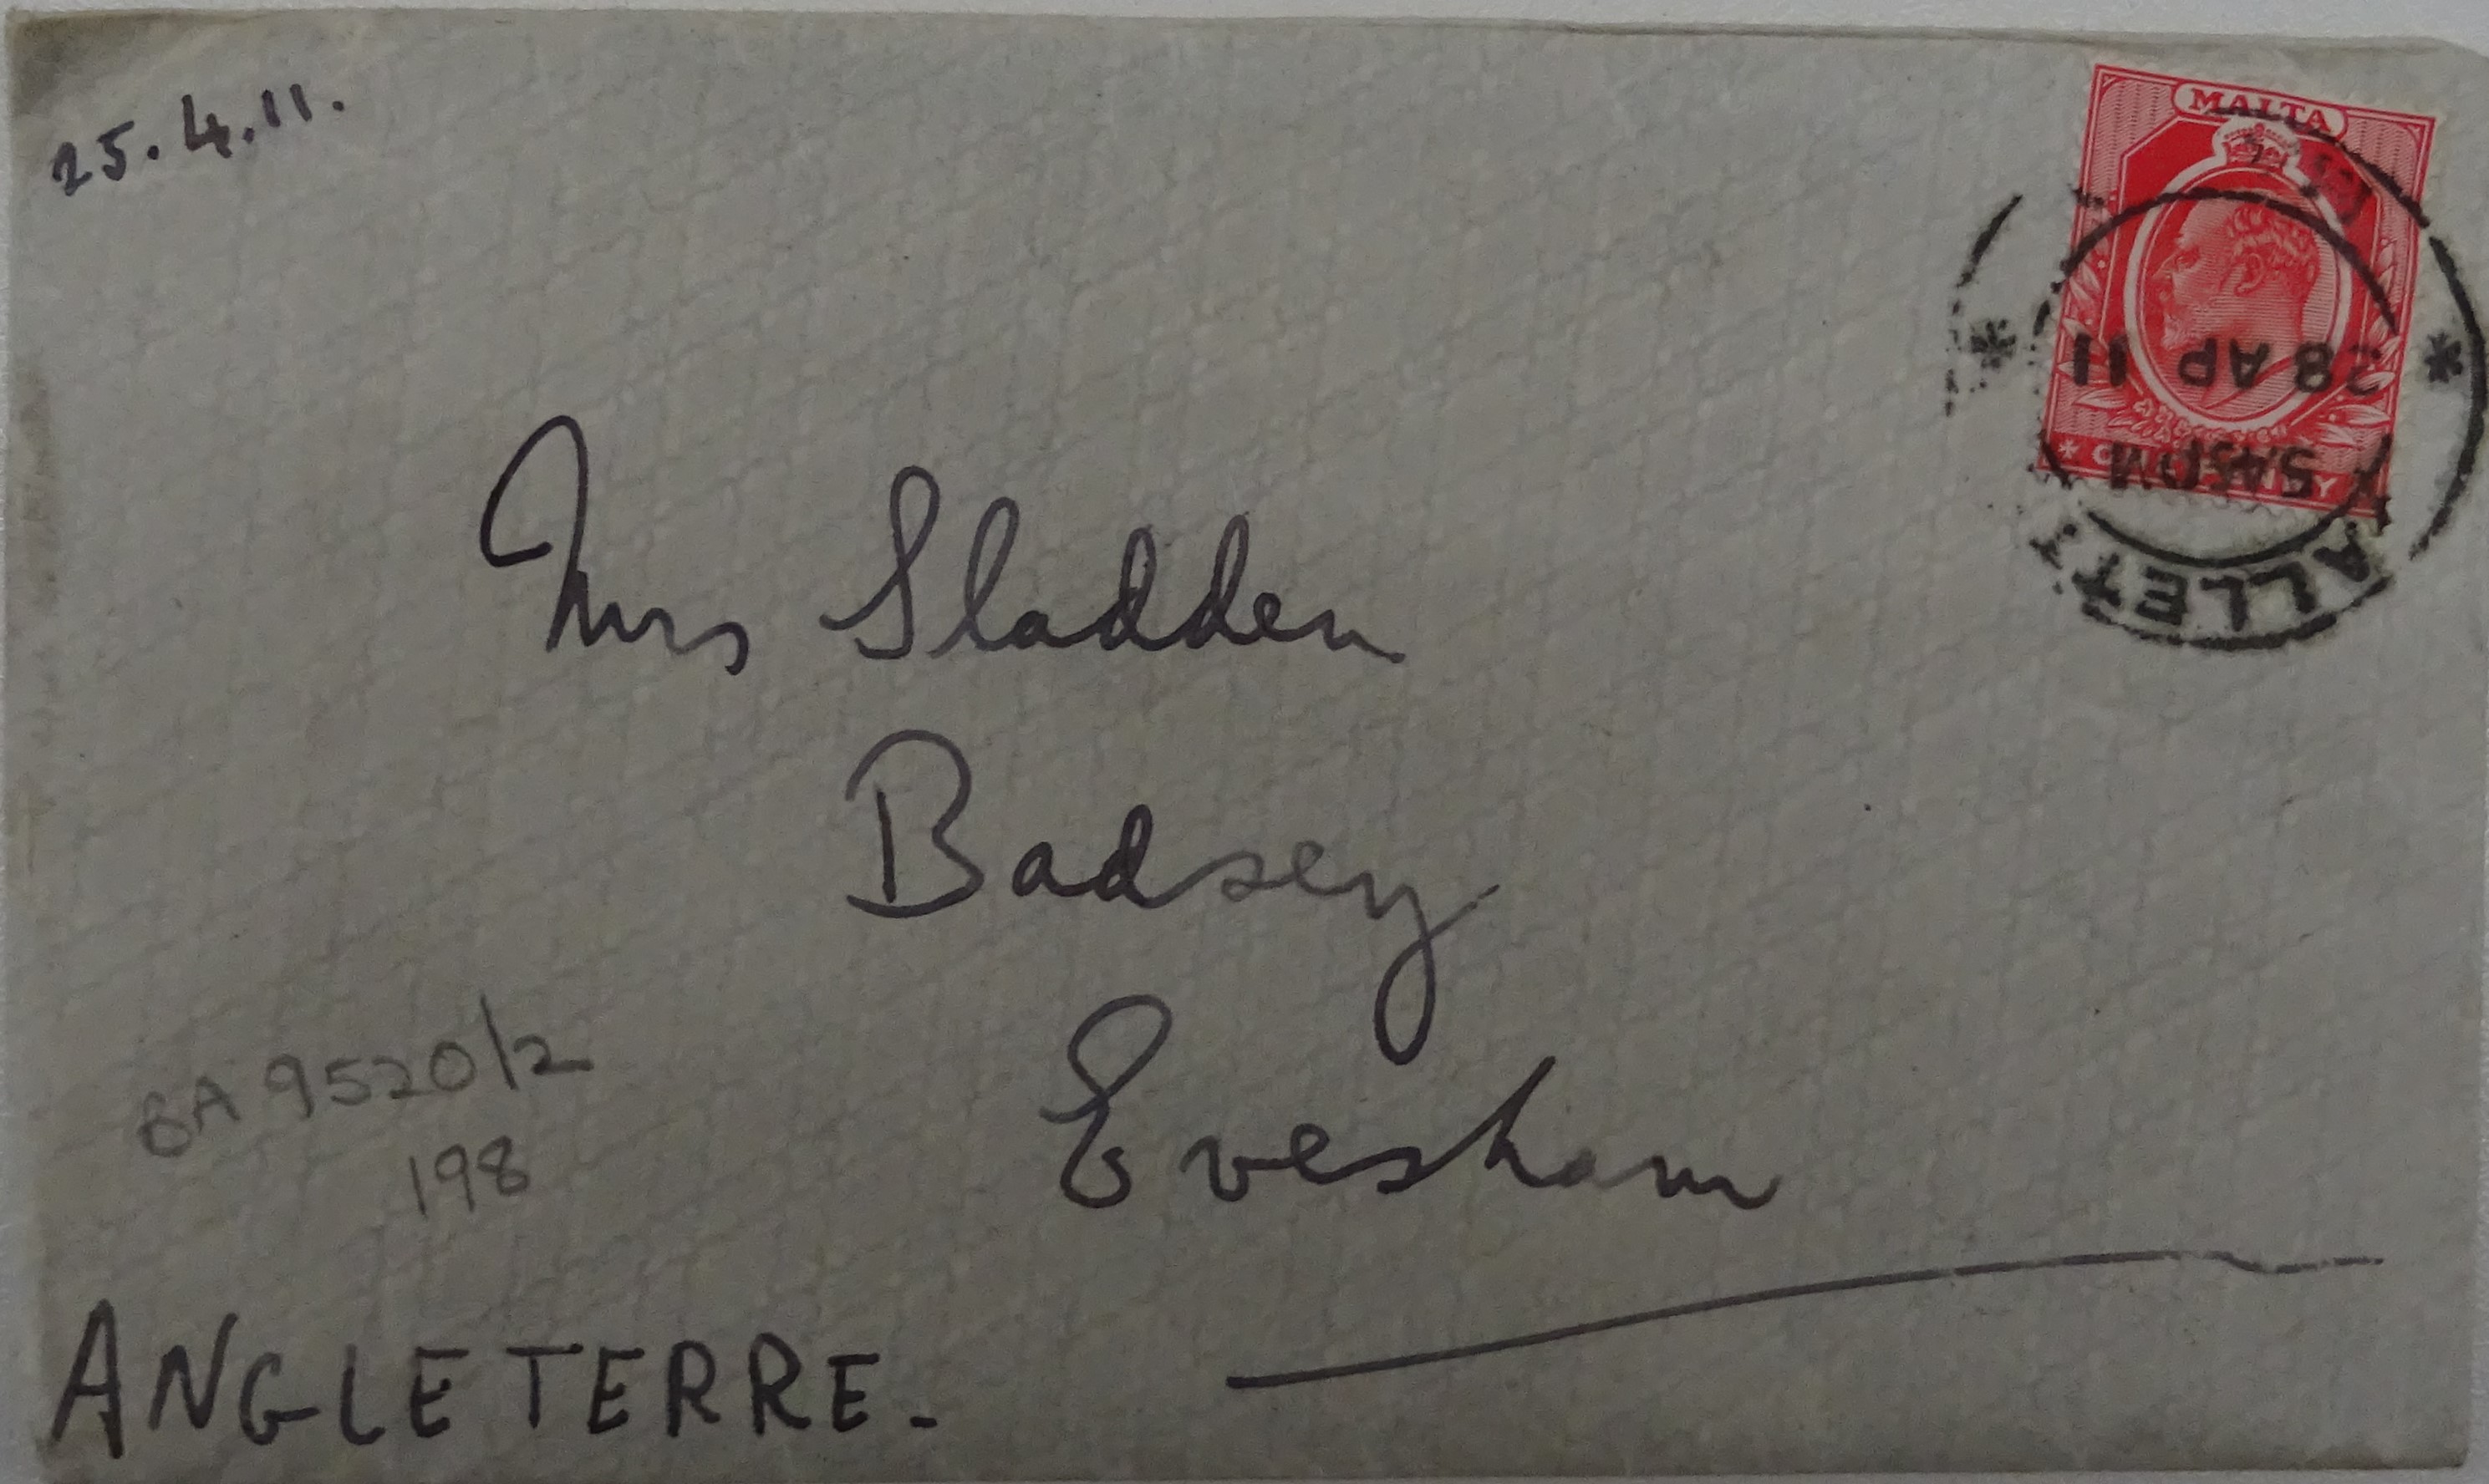 25.4.11.
MALTA
28 AP 11
5.45PM
Mrs Sladden
Badsey
Evesham
BA 9520/2
198
ANGLETERRE.